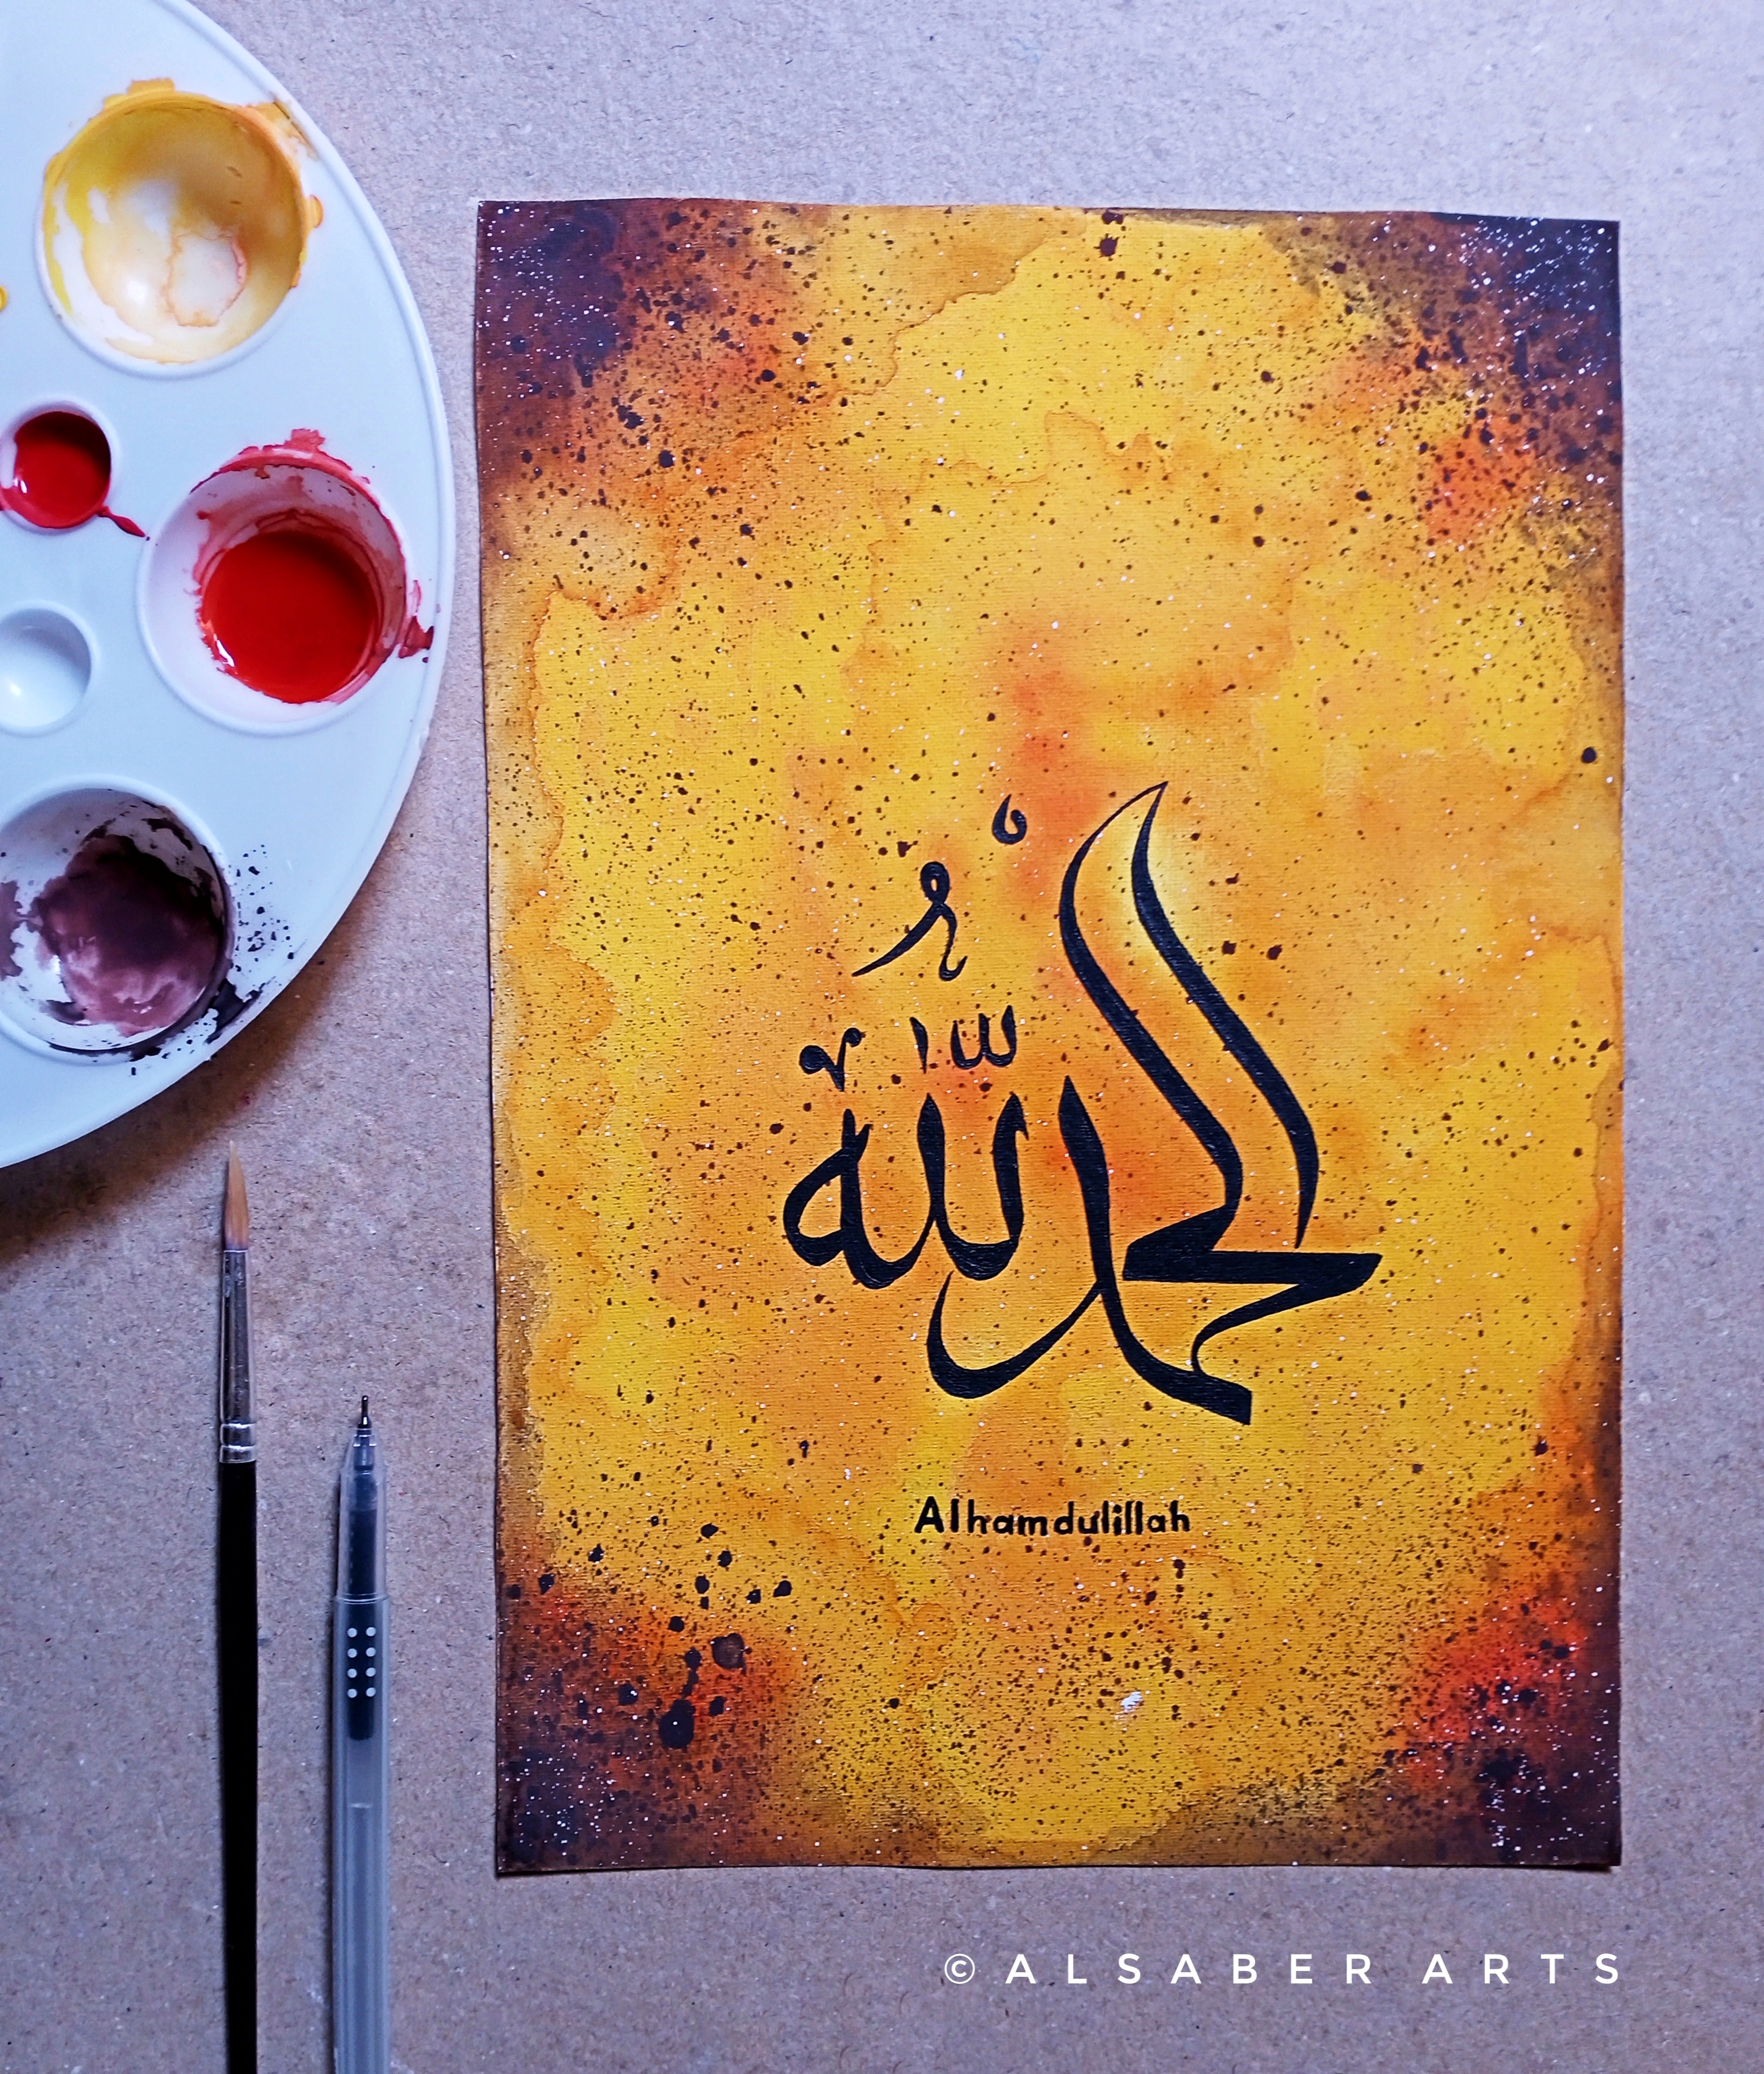 الحمد لله
Alhamdulillah
© ALSABER ARTS